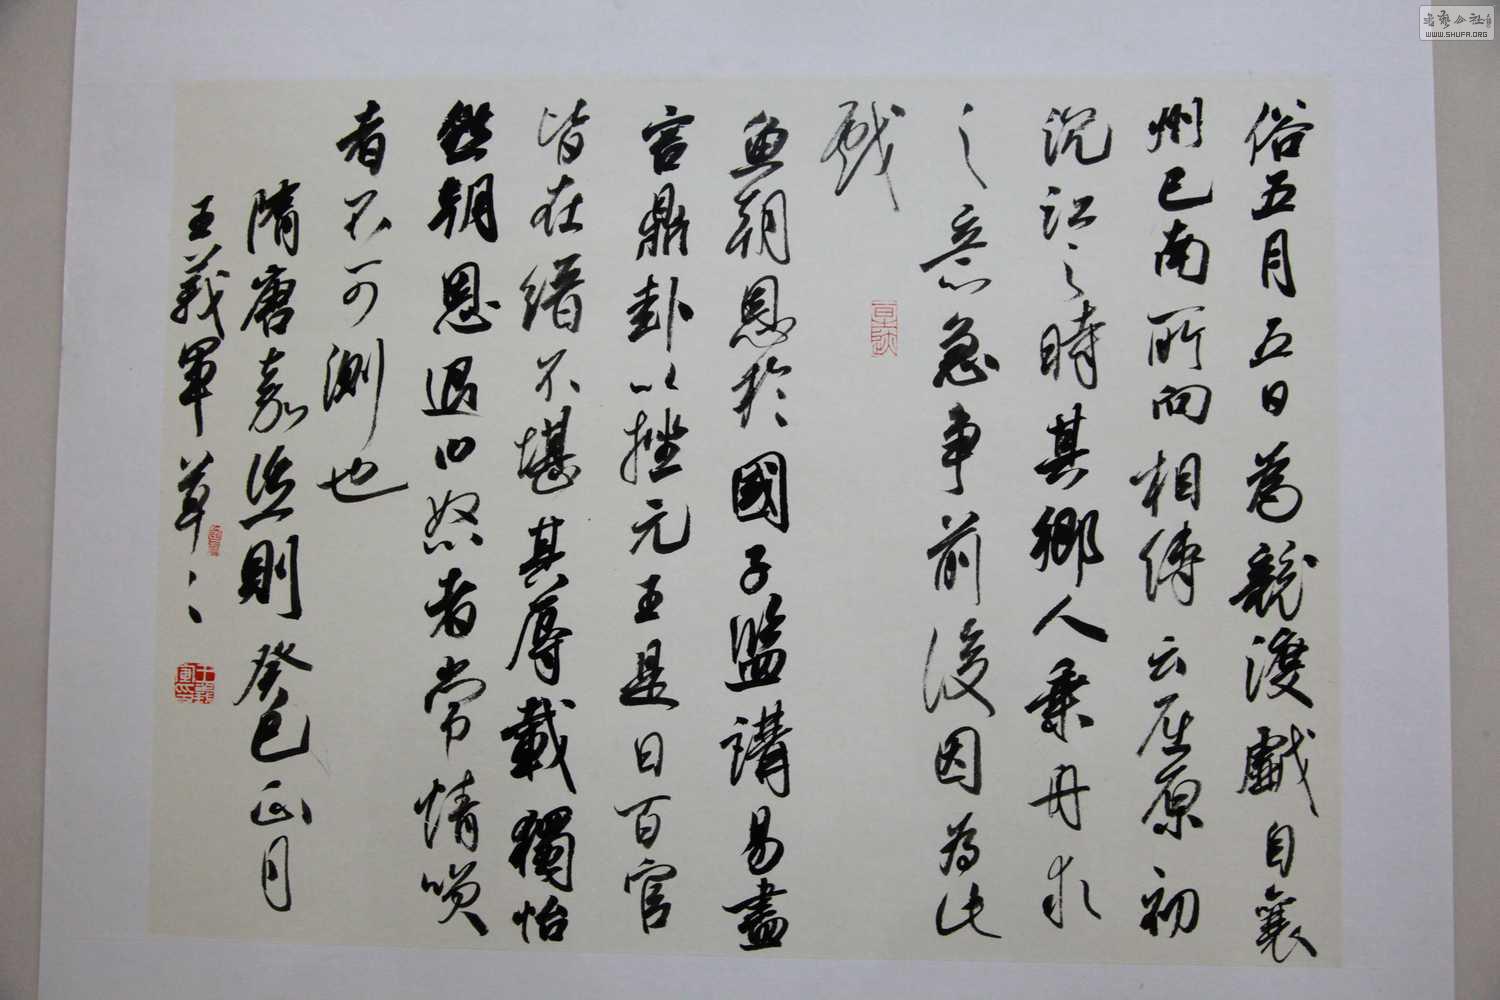 俗五月五日為競渡戲自襄
州已南所向相傳云屈原初
沉江之時其鄉人乘舟求
之意急爭前後因為此
戲
魚朝恩於國子監講易盡
言鼎卦以挫元王是日百官
皆在縉不堪其辱載獨怡
然朝恩退曰怒者常情笑
者不可測也
隋唐嘉話二則 癸巳正月
王義軍草之
書藝公社
WWW.SHUFA.ORG